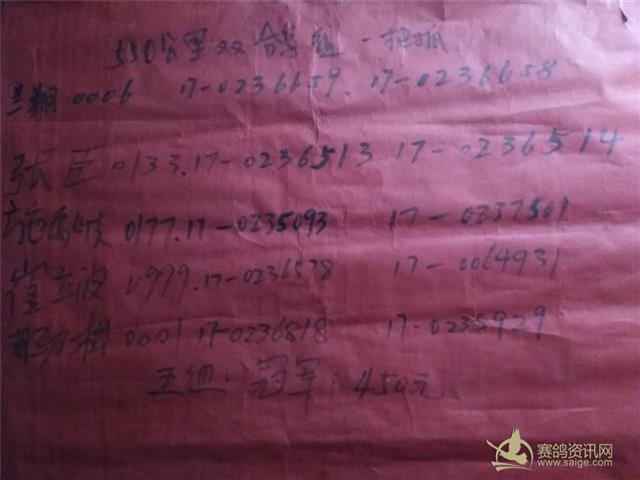 550公里双鸽组 一招抓
兰翔 0006 17-0236659. 17-0236658
张臣 0133.17-0236513 17-0236514
0177.17-0235093 17-0237501
崔立波 0999.17-0236578 17-0064931
0001 17-0236818 17-0235929
五组: 冠军: 450元
赛鸽资讯网
www.saige.com